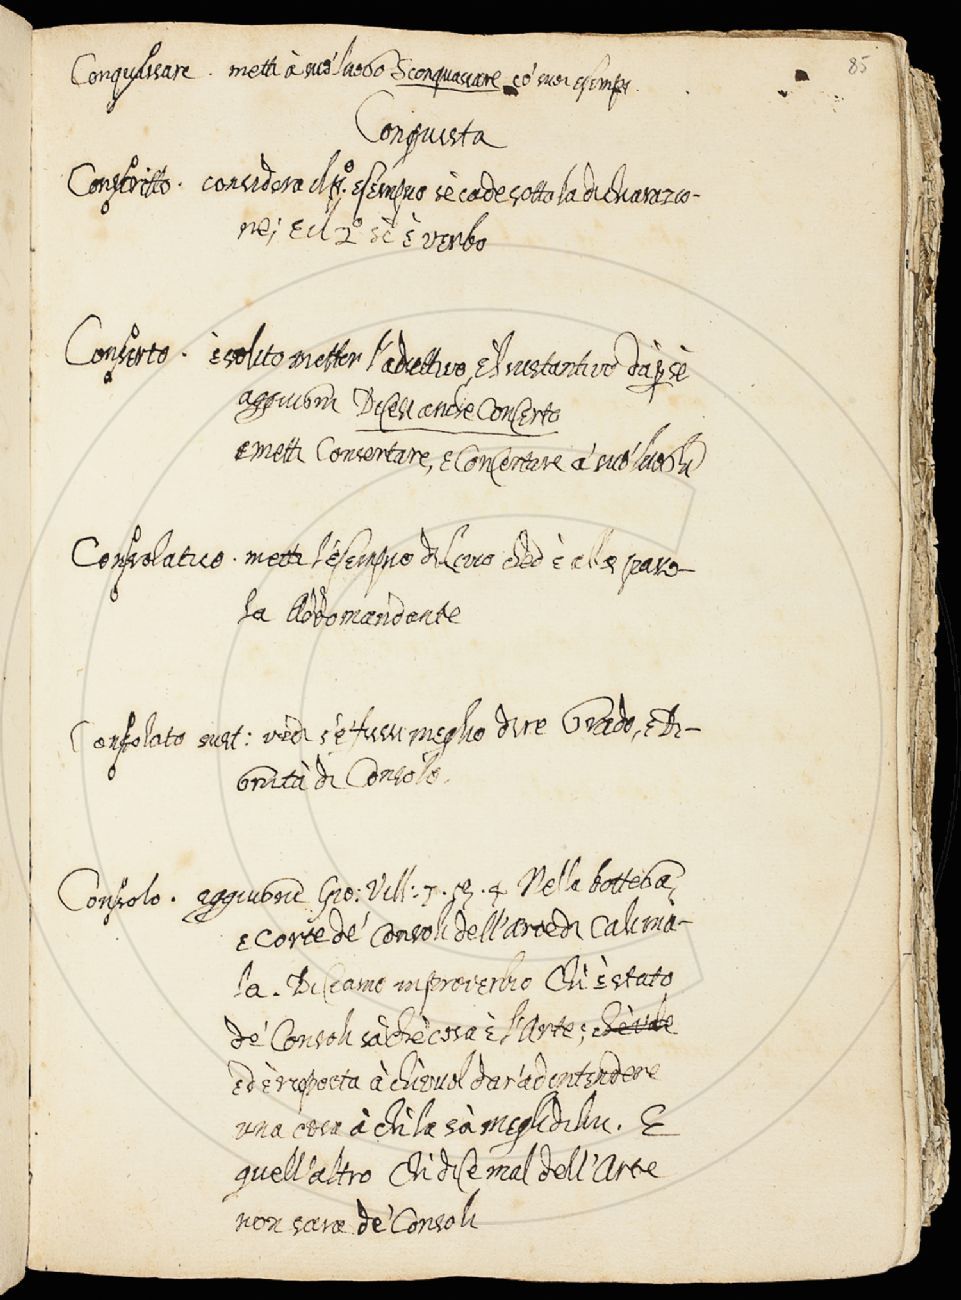 85
Conquassare. metti à suo luogo Sconquassare co' suoi esempi
Conquista
Conscritto. considera il p.º esempio sè cade sotto la dichiarazio-
ne; E il 2º sè è verbo
Conserto. è solito metter l'adiettivo, E'l sustantivo dà p sè
aggiugni Dicesi anche Concerto
e metti Consertare, e Concertare à suo' luoghi
Consolatico. metti l'esempio di Livio ched è alla paro-
la Addomandante
Consolato sust: vedi s'è fussi meglio dire Grado, e Di-
gnità di Consolo.
Consolo. aggiugni Gio: Vill: 7. 13. 4 Nella bottega,
e corte de' Consoli dell'arte di Calima-
la. Diciamo in proverbio Chi è stato
de' Consoli sà che cosa è l'Arte; che vale
ed è risposta à chi vuol dar'ad intendere
una cosa à chi la sà meglio di lui. E
quell'altro Chi dice mal dell'Arte
non sarà de' Consoli